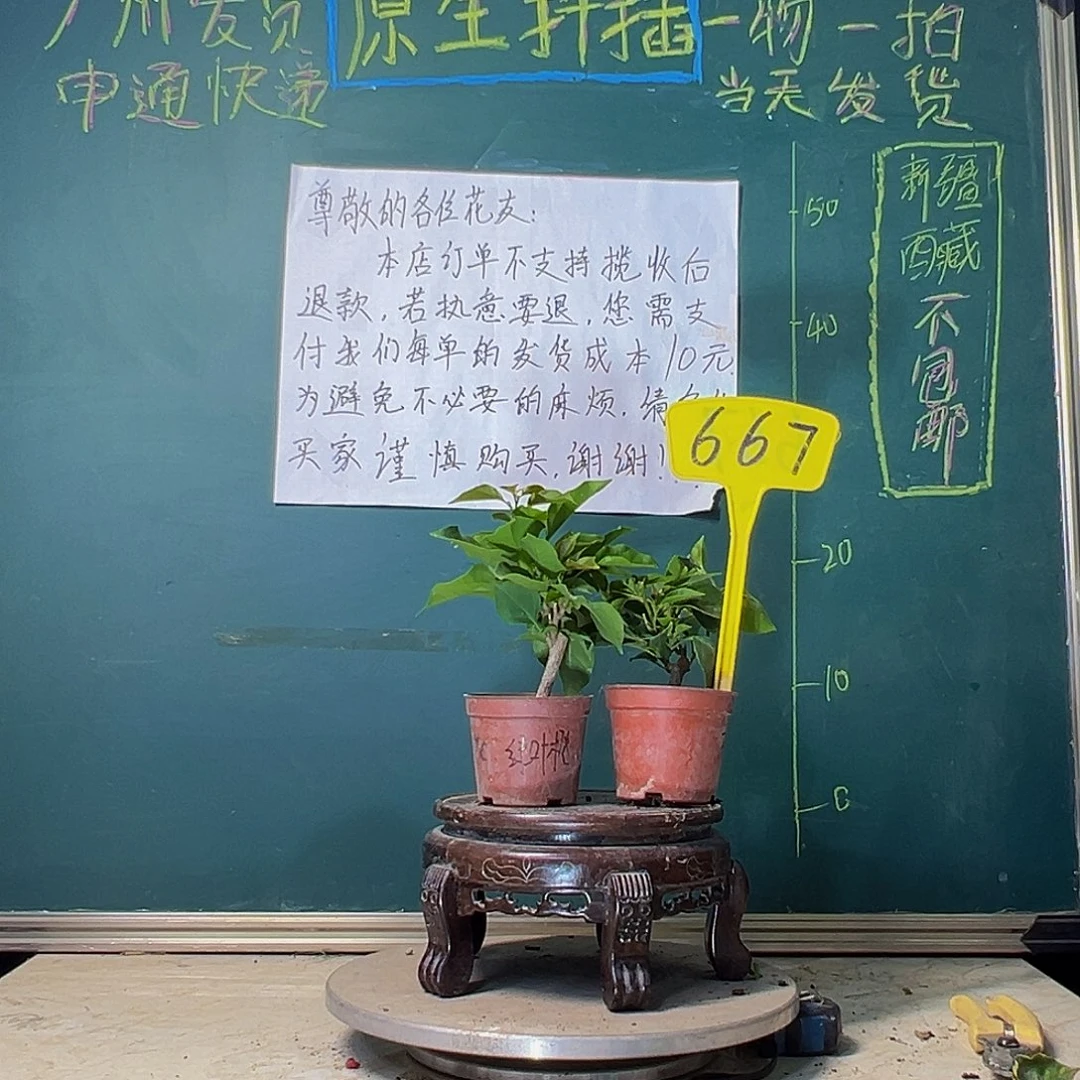 广州发货
原生扦插
一物一拍
申通快递
当天发货
尊敬的各位花友:
本店订单不支持揽收后
退款,若执意要退,您需支
付我们每单的发货成本10元.
为避免不必要的麻烦.请
买家谨慎购买,谢谢!
667
新疆
西藏
不包邮
50
40
20
10
0
红叶